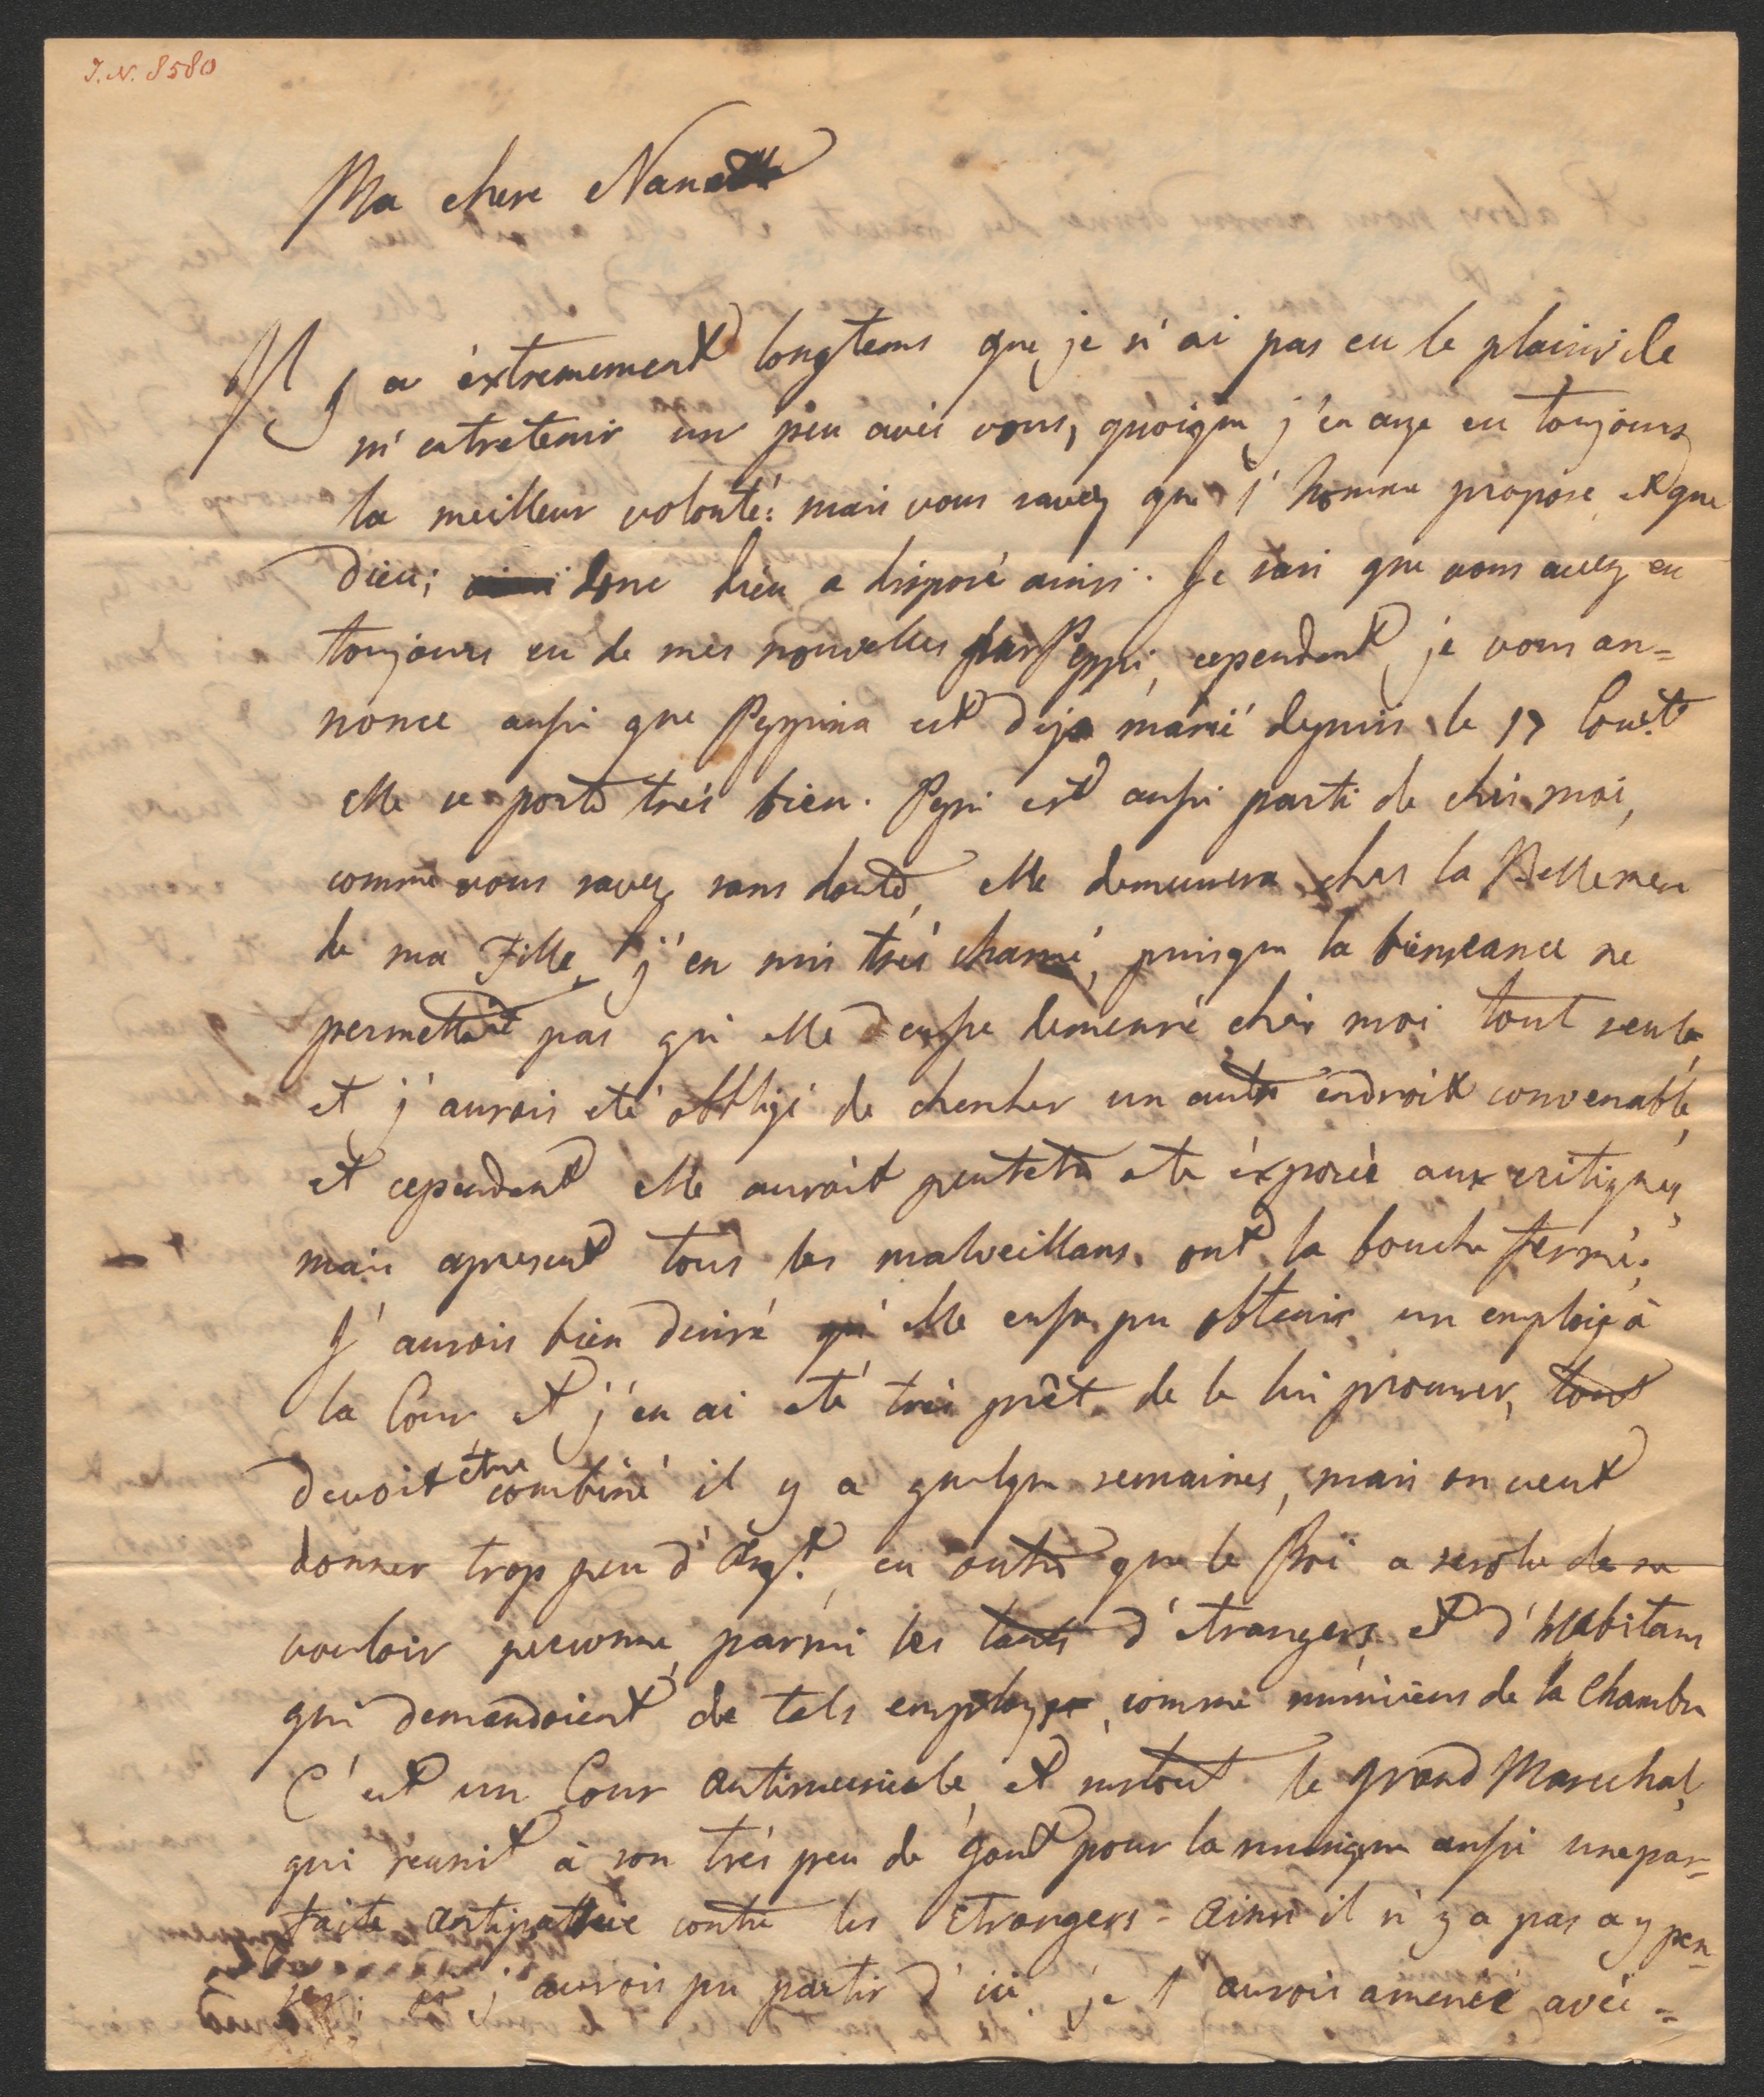 I. N. 8580
Ma chere Nanette
Il y a éxtrememement longtems que je n'ai pas eu le plaisir de
m'entretenir un peu avec vous, quoique j'en aye eu toujours
la meilleur volonté: mais vous savez que l'homme propose et que
Dieu; donc Dieu a disposé ainsi. Je sais que vous avez eu
toujours eu de mes nouvelles par Peppi, cependant je vous an=
nonce aussi que Peppina est deja marié depuis le 17 Cour.t
elle se porte trés bien. Peppi est aussi parti de chés moi,
comme vous savez sans doute, elle demeurera chés la Bellemere
de ma Fille, j'en suis trés charmé, puisque la bienseance ne
permettoit pas qu'elle eusse demeuré chés moi tout seule
et j'aurois eté obbligé de chercher un autre endroit convenable,
et cependent elle auroit peutetre ete éxposée aux critiques,
mais apresent tous les malveillans ont la bouche fermé.
J'aurois bien desiré qu'elle eusse pu obtenir un employ à
la Cour et j'en ai eté trés prêt de le lui procurer, tout
devoit être combiné il y a quelque semaines, mais on veut
donner trop peu d'Arg.t, en outre que le Roi a resolu de ne
vouloir personne parmi les tants d'etrangers et d'Habitans
qui demandoient de tels employs, comme musiciens de la Chambre
C'est un Cour antimusicale et surtout le grand Marechal,
qui réunit à son trés peu de goût pour la musique aussi une par=
faite antipathie contre les Etrangers - ainsi il n'y a pas a y pen=
ser: si j'aurois pu partir d'ici, je l'aurois amenée avec =